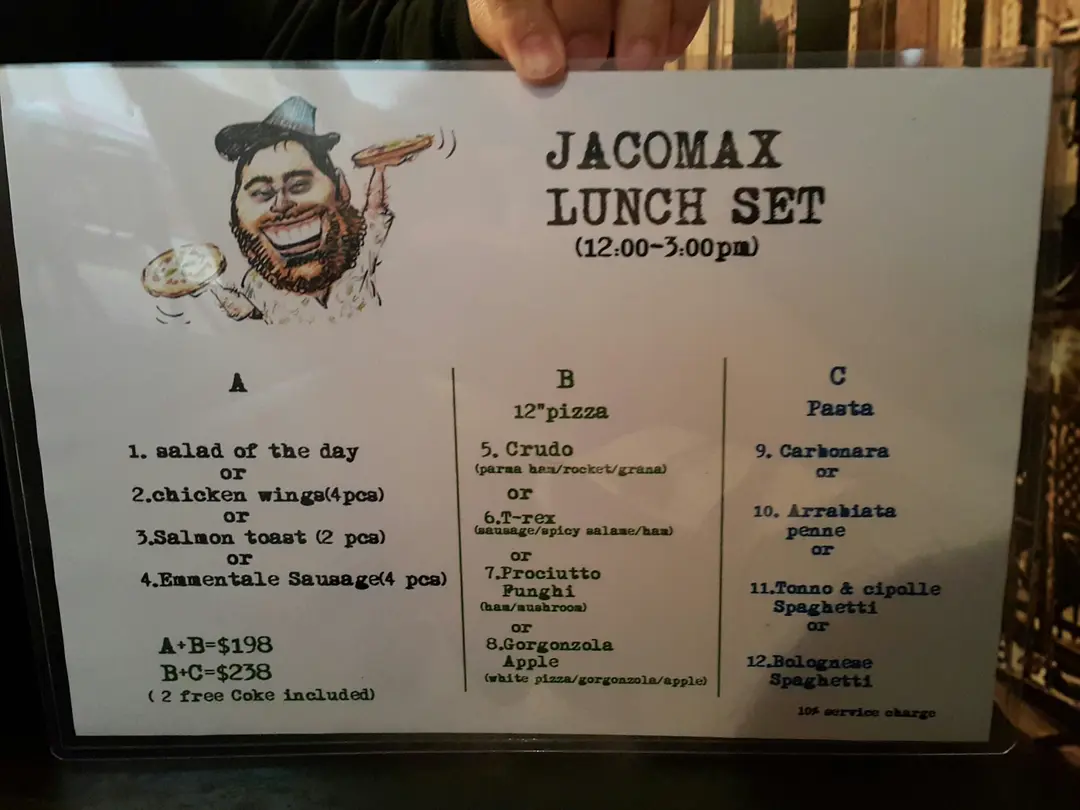 JACOMAX
LUNCH SET
(12:00-3:00pm)
A
1. salad of the day
or
2.chicken wings(4pcs)
or
3.Salmon toast (2 pcs)
or
4.Emmentale Sausage(4 pcs)
A+B=$198
B+C=$238
( 2 free Coke included)
B
12"pizza
5. Crudo
(parma ham/rocket/grana)
or
6.T-rex
(sausage/spicy salame/ham)
or
7.Prociutto
Funghi
(ham/mushroom)
or
8.Gorgonzola
Apple
(white pizza/gorgonzola/apple)
C
Pasta
9. Carbonara
or
10. Arrabiata
penne
or
11.Tonno & cipolle
Spaghetti
or
12.Bolognese
Spaghetti
10% service charge